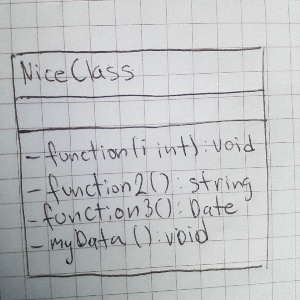 NiceClass
- function(i int): void
- function2(): string
- function3(): Date
- myData(): void